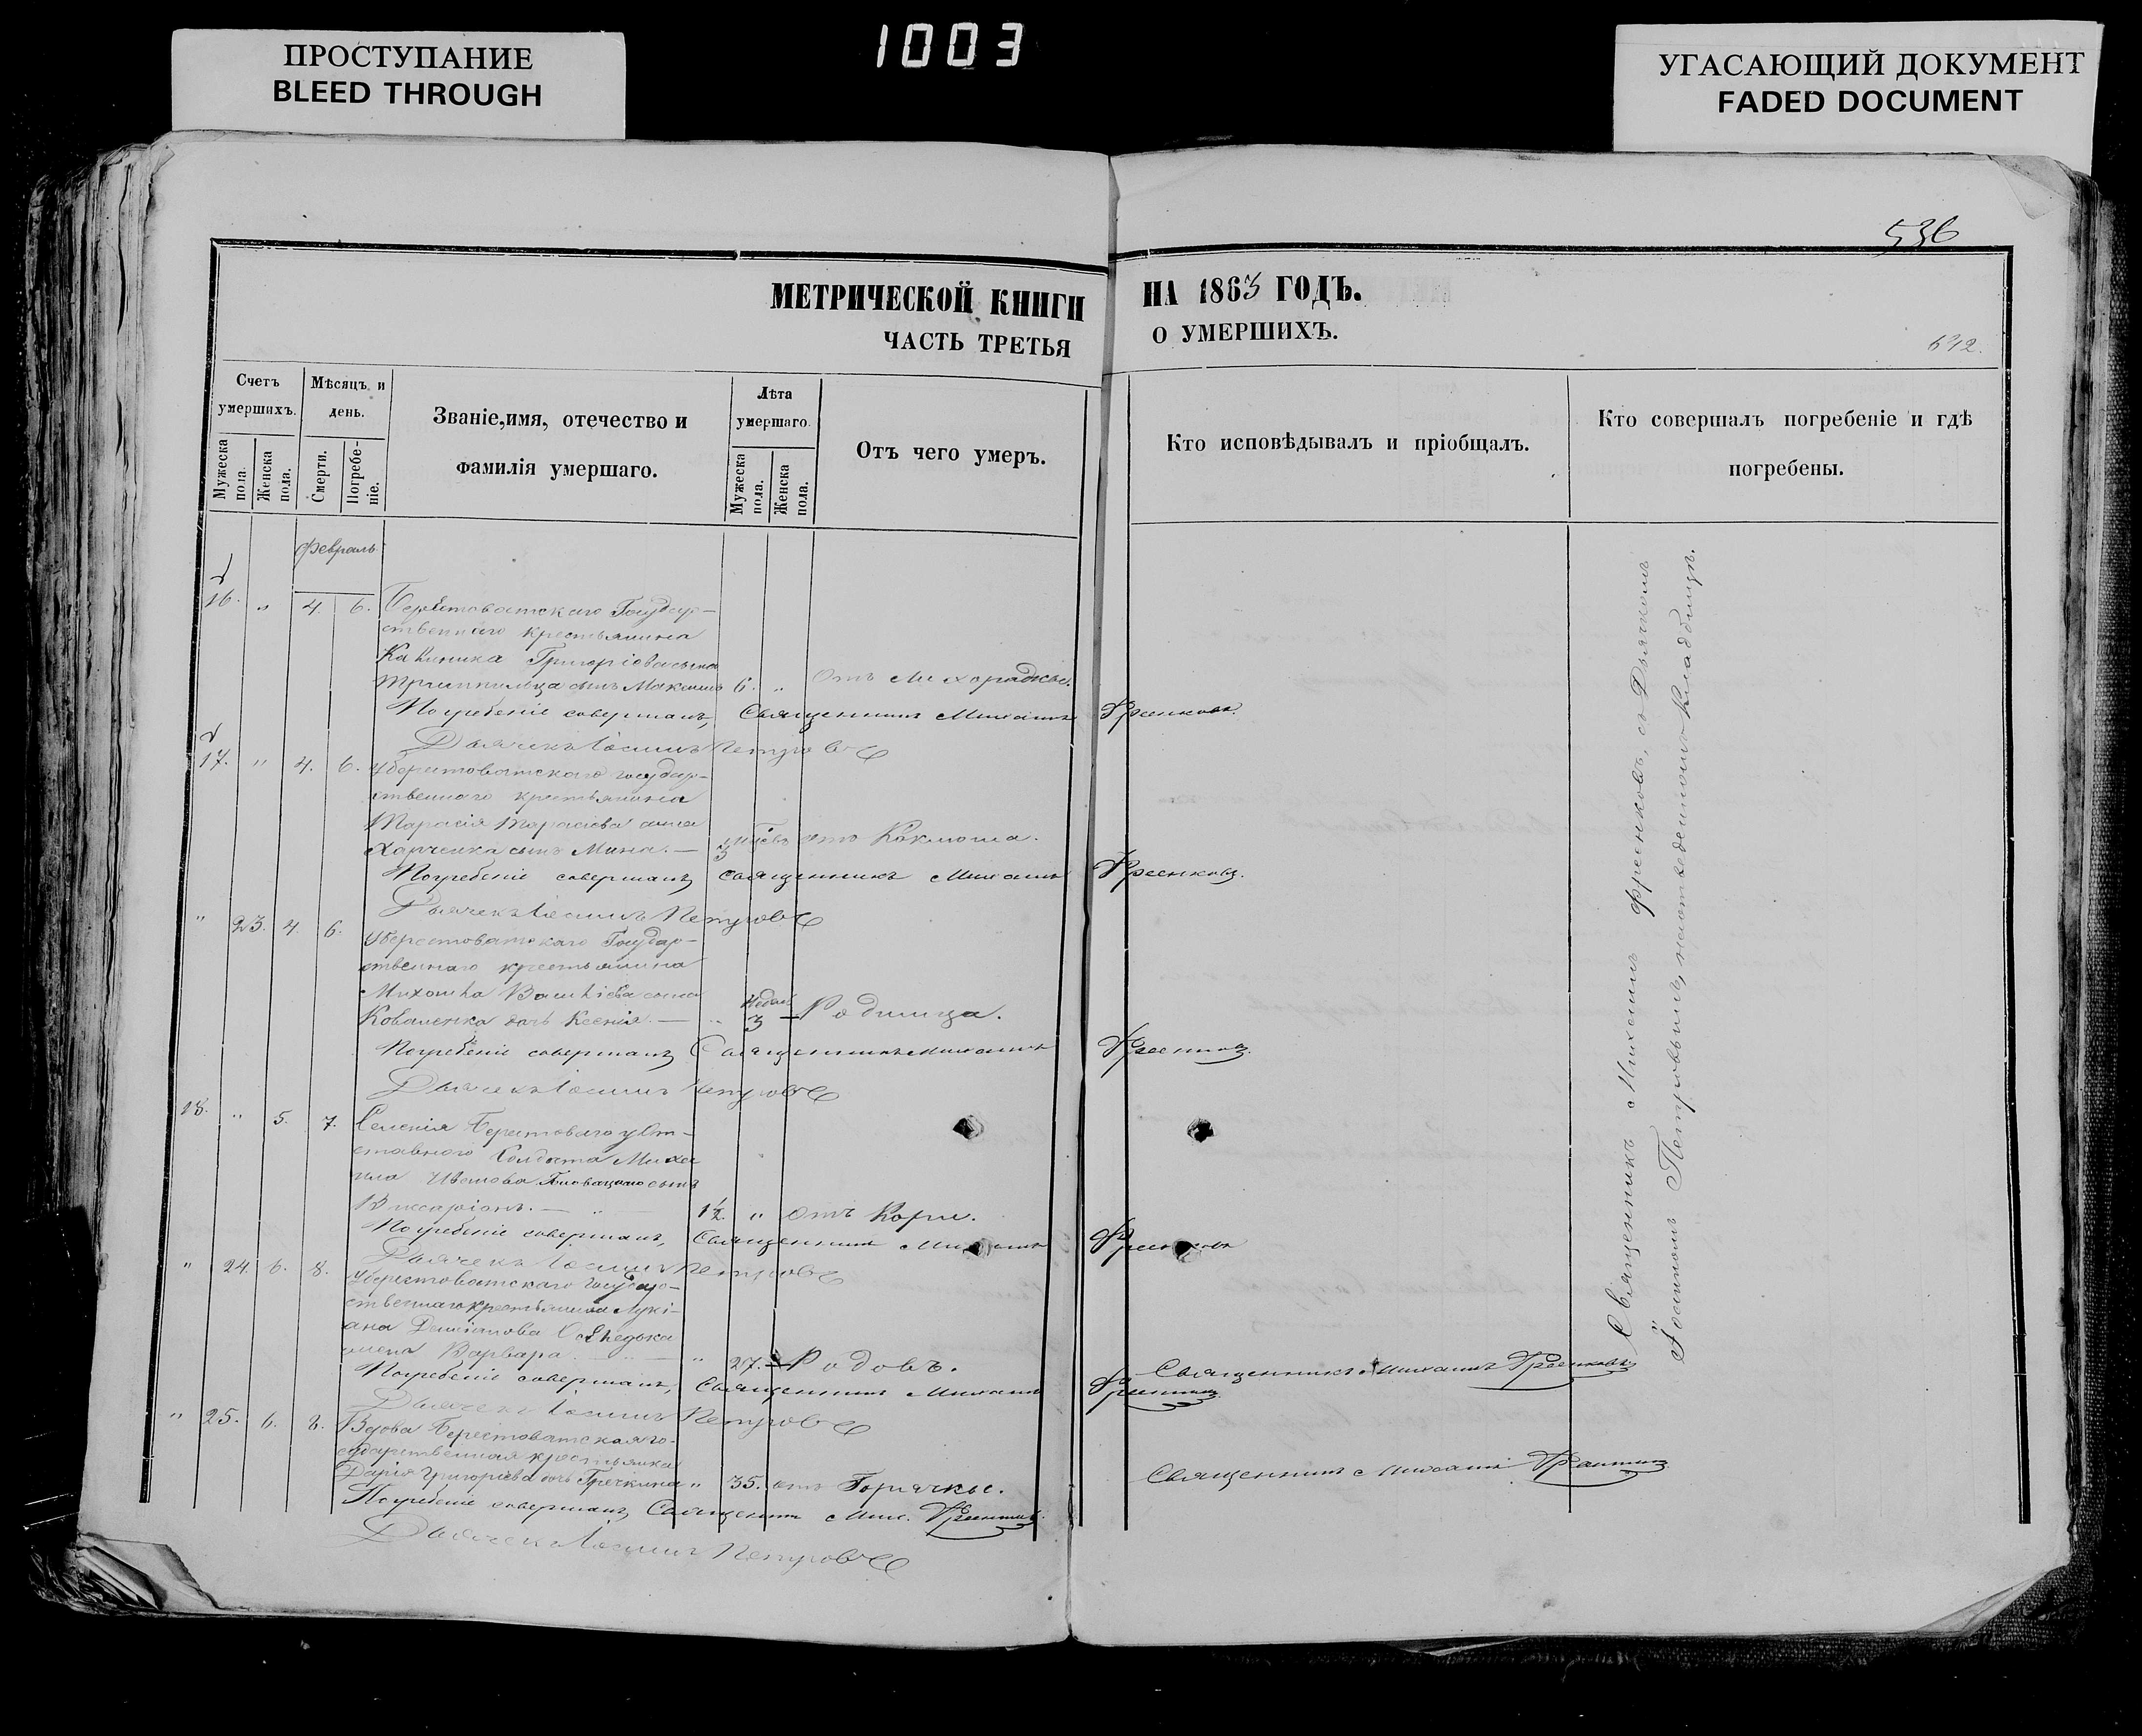 ПРОСТУПАНИЕ
BLEED THROUGH
1003
УГАСАЮЩИЙ ДОКУМЕНТ
FADED DOCUMENT
536
МЕТРИЧЕСКОЙ КНИГИ НА 1863 ГОДЪ.
ЧАСТЬ ТРЕТЬЯ О УМЕРШИХЪ.
642.
Счетъ умершихъ.
Мужеска пола.
Женска пола.
Мѣсяцъ и день.
Смерти.
Погребеніе.
Званіе, имя, отечество и фамилія умершаго.
Лѣта умершаго.
Мужеска пола.
Женска пола.
Отъ чего умеръ.
Кто исповѣдывалъ и пріобщалъ.
Кто совершалъ погребеніе и гдѣ погребены.
Февраль
16. " 4. 6. Берестоватскаго Государ-
ственнаго крестьянина
Калиника Григоріева сына
сынъ Максимъ 6. " Отъ лихорадки.
Погребеніе совершалъ, Священникъ Михаилъ
Дьячекъ Іоаннъ Петровъ
17. " 4. 6. Уберестоватскаго государ-
ственнаго крестьянина
Тарасія Тарасіева сына
Харченка сынъ Мина. — 3 отъ Коклюша.
Погребеніе совершалъ священникъ Михаилъ
Дьячекъ Іоаннъ Петровъ
" 23. 4. 6. Уберестоватскаго Государ-
ственнаго крестьянина
Михаила сына
Коваленка дочь Ксенія. — " 3 — Родимца.
Погребеніе совершалъ Священникъ Михаилъ
Дьячекъ Іоаннъ Петровъ
18. " 5. 7. Селенія Берестоваго у От-
ставного Солдата Миха
ила Иванова сынъ
Виссаріонъ. — 1½. " отъ Кори.
Погребеніе совершалъ, Священникъ Михаилъ
Дьячекъ Іоаннъ Петровъ
" 24. 6. 8. Уберестоватскаго Государ-
ственнаго крестьянина Лукі-
ана Даміанова
жена Варвара. — " 27. — Родовъ.
Священникъ Михаилъ
Погребеніе совершалъ, Священникъ Михаилъ
Дьячекъ Іоаннъ Петровъ
" 25. 6. 8. Вдова Берестоватская го-
сударственная крестьянка
Дарія Григорьева дочь " 35. отъ Горячки.
Священникъ Михаилъ
Погребеніе совершалъ Священникъ Мих.
Дьячекъ Іоаннъ Петровъ
Священникъ Михаилъ съ Дьячкомъ
Іоанномъ Петровымъ, на отведенномъ кладбищѣ.